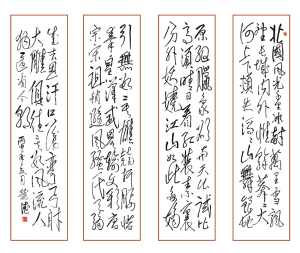 北国风光千里冰封万里雪飘
望长城内外惟余莽莽大
河上下顿失滔滔山舞银蛇
原驰腊象欲与天公试比
高须晴日看红装素裹
分外妖娆江山如此多娇
引无数英雄竞折腰惜
秦皇汉武略输文采唐
宗宋祖稍逊风骚一代天骄
成吉思汗只识弯弓射
大雕俱往矣数风流人
物还看今朝